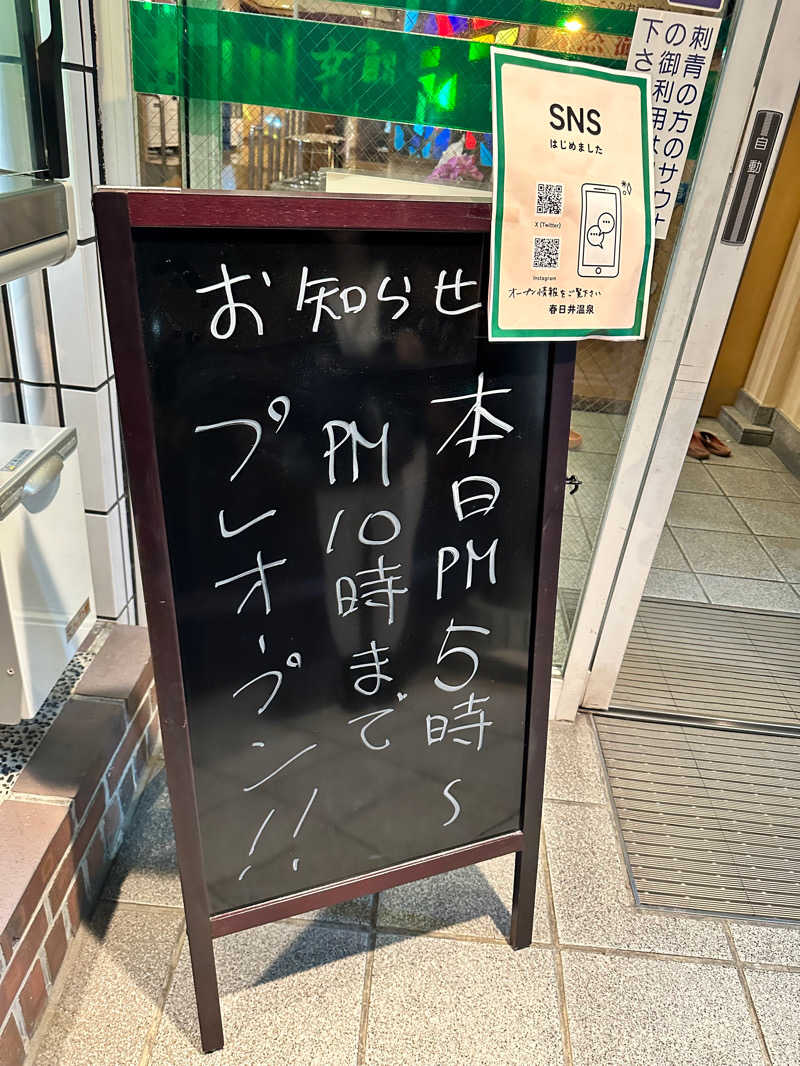 お知らせ
本日PM5時~
PM10時まで
プレオープン!!
SNS
はじめました
X (Twitter)
Instagram
オープン情報をご覧下さい
春日井温泉
刺青の方のサウナ
の御利用は
下さ
自動
女湯